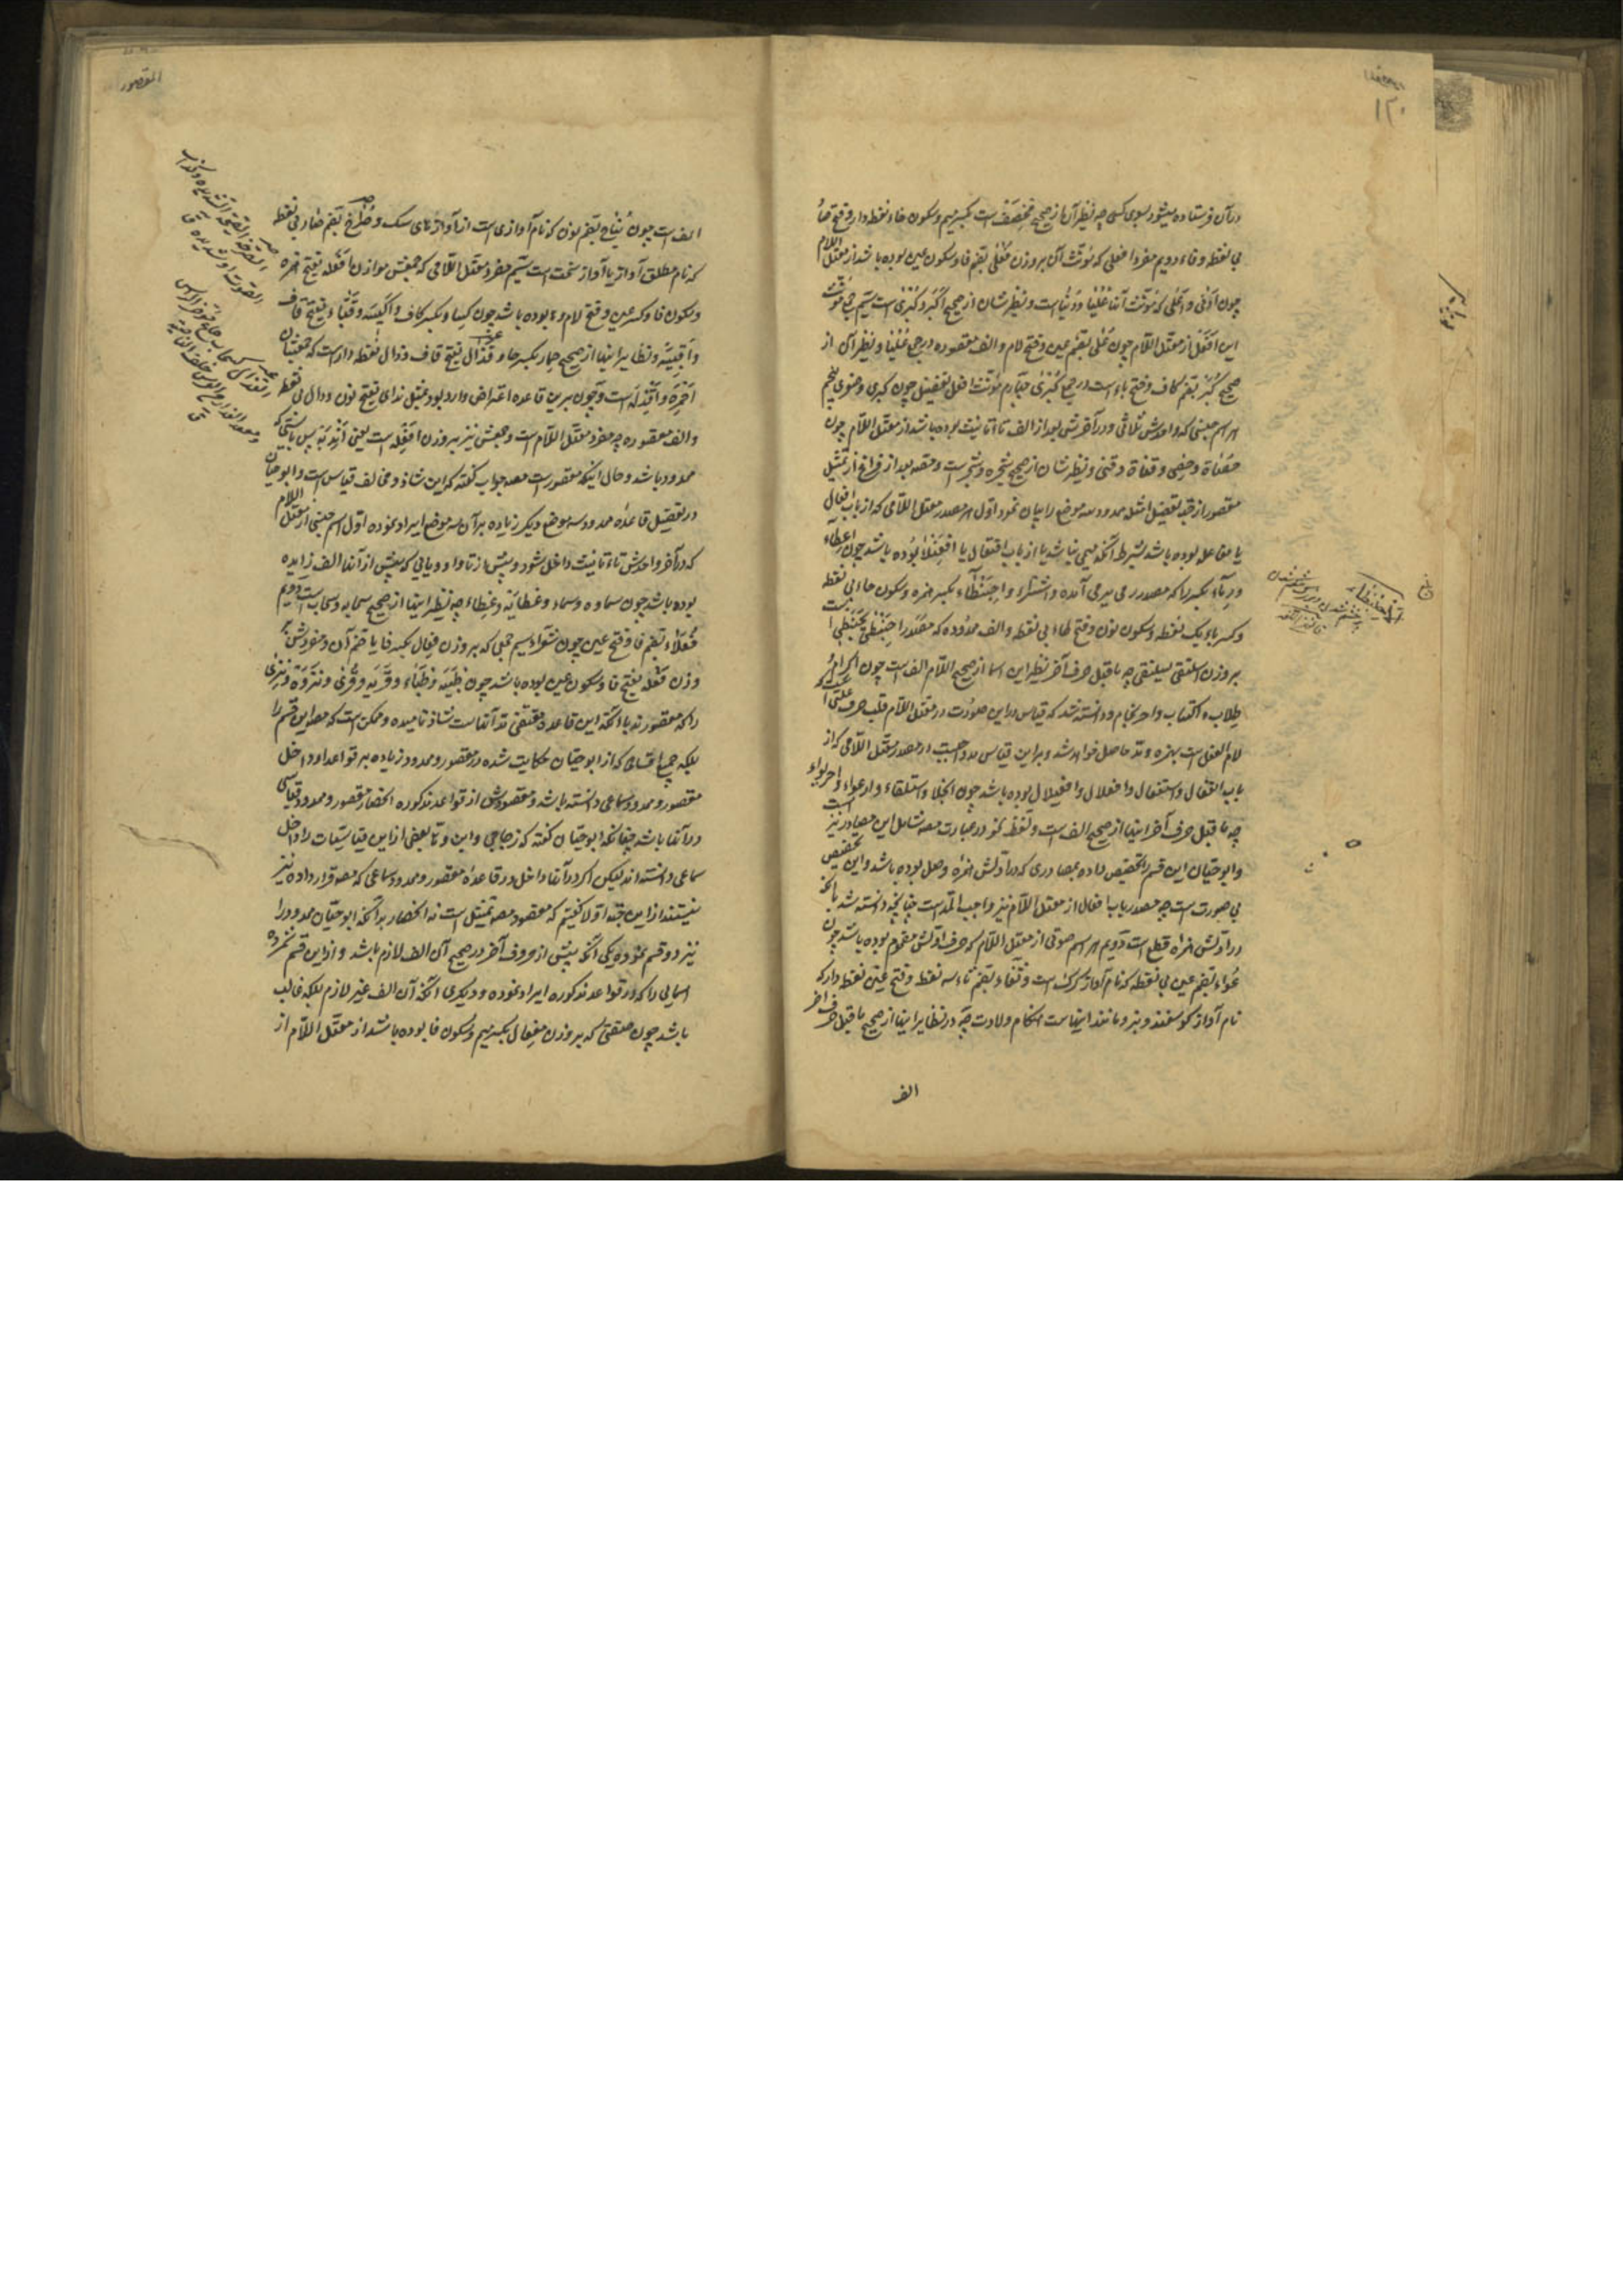 ۱۲۰
در آن فرستاده میشود بسوی کسی چه نظیر آن از صحیح مخصف است بکسر میم و سکون خاء نقطه دار و فتح صاد
بی نقطه و فاء دویم مفرد افعلی که مؤنث آن بر وزن فعلی بضم فا و سکون عین بوده باشد از معتل اللام
چون ادنی و اعلی که مؤنث آنها علیا و دنیا است و نظیرشان از صحیح اکبر و کبری است سیم جمع مؤنث
این افعل از معتل اللام چون علی بضم عین و فتح لام و الف مقصوره در جمع علیا و نظیر آن از
صحیح کبر بضم کاف و فتح باء است در جمع کبری چهارم مؤنث افعل تفضیل چون کبری و صغری پنجم
هر اسم جنسی که واحدش ثلاثی و در آخرش بعد از الف تاء تانیث بوده باشد از معتل اللام چون
حصاة و حصی و قناة و قنی و نظیرشان از صحیح شجره و شجر است و مصه بعد از فراغ از تمثیل
مقصور از جهة تفصیل امثله ممدود سه موضع را بیان نمود اول هر مصدر معتل اللامی که از باب افعال
یا مفاعله بوده باشد بشرط آنکه میمی نباشد یا از باب افتعال یا افعنلا بوده باشد چون اعطاء
و رآء بکسر را که مصدر رمی یرمی آمده و اشتراء و احبنطاء بکسر همزه و سکون حاء بی نقطه
و کسر باء یک نقطه و سکون نون و فتح طاء بی نقطه و الف ممدوده که مصدر احبنطی یحبنطی است
بر وزن اسلنقی یسلنقی چه ماقبل حرف آخر نظیر این اسما از صحیح اللام الف است چون اکرام
طلاب و اکتساب و احرنجام و دانسته شد که قیاس در این صورت در معتل اللام قلب حرف علتی که
لام الفعل است بهمزه و مد حاصل خواهد شد و براین قیاس مد واجبست در مصدر معتل اللامی که از
باب انفعال و استفعال و افعلال و افعیلال بوده باشد چون انجلا و استلقاء و ارعواء و احریواء
چه ماقبل حرف آخر اینها از صحیح الف است و لفظ نحو در عبارت مصه شامل این مصادر نیز است
و ابوحیان این قسم را تخصیص داده بمصادری که در اولش همزه وصل بوده باشد و این تخصیص
بی صورت است چه مصدر باب افعال از معتل اللام نیز واجب المد است چنانچه دانسته شد با آنکه
در اولش همزه قطع است دویم هر اسم صوتی از معتل اللام که حرف اولش مضموم بوده باشد چون
عواء بضم عین بی نقطه که نام آواز گرگ است و ثغاء بضم ثاء سه نقطه و فتح غین نقطه دار که
نام آواز گوسفند و بز و مانند اینهاست هنگام ولادت چه در نظایر اینها از صحیح ماقبل حرف آخر
الف
المقصور
الف است چون نباح بضم نون که نام آوازی است از آوازهای سگ و صراخ بضم صاد بی نقطه
که نام مطلق آواز یا آواز سخت است سیم مفرد معتل اللامی که جمعش موازن افعله بفتح همزه
و سکون فا و کسر عین و فتح لام و ة بوده باشد چون کساء بکسر کاف و اکسیه و قباء بفتح قاف
و اقبیه و نظایر اینها از صحیح حمار بکسر حا و قذال بفتح قاف و ذال نقطه دار است که جمعشان
احمره و اقذله است و چون برین قاعده اعتراض وارد بود بمثل ندای بفتح نون و دال بی نقطه
و الف مقصوره چه مفرد معتل اللام است و جمعش نیز بر وزن افعله است یعنی اندیه پس بایستی که
ممدود باشد و حال اینکه مقصور است مصه جواب گفته که این شاذ و مخالف قیاس است و ابوحیان
در تفصیل قاعده ممدود سه موضع دیگر زیاده بر آن سه موضع ایراد نموده اول اسم جنسی از معتل اللام
که در آخر واحدش تاء تانیث داخل شود و پیش از تا واو و یایی که پیش از آنها الف زایده
بوده باشد چون سماوه و سماء و عظایه و عظاء چه نظیر اینها از صحیح سحابه و سحاب است دویم
فعلاء بضم فا و فتح عین چون شعراء سیم جمعی که بر وزن فعال بکسر فا یا ضم آن و مفردش بر
وزن فعله بفتح فا و سکون عین بوده باشد چون ظبیه و ظباء و قریه و قری و نزوه و نزی
را که مقصورند با آنکه این قاعده مقتضی مد آنهاست شاذ نامیده و ممکن است که مصه این قسم را
بلکه جمیع اقسامی که از ابوحیان حکایت شده در مقصور و ممدود زیاده بر قواعد او داخل
مقصور و ممدود سماعی دانسته باشد و مقصودش از قواعد مذکوره انحصار مقصور و ممدود قیاسی
در آنها باشد چنانکه ابوحیان گفته که زجاجی و ابن ولاد بعضی از این قیاسیات را داخل
سماعی دانسته اند لیکن اگر در آنها داخل در قاعده مقصور و ممدود سماعی که مصه قرار داده نیز
نیستند از این جهة اولا گفتیم که مقصود مصه تمثیل است نه انحصار بدآنکه ابوحیان ممدود را
نیز دو قسم نموده یکی آنکه پیش از حروف آخر در صحیح آن الف لازم باشد و از این قسم شمرده
اسمایی را که در قواعد مذکوره ایراد نموده و دیگری آنکه آن الف غیر لازم بلکه غالب
باشد چون مقضی که بر وزن مفعال بکسر میم و سکون فا بوده باشد از معتل اللام از